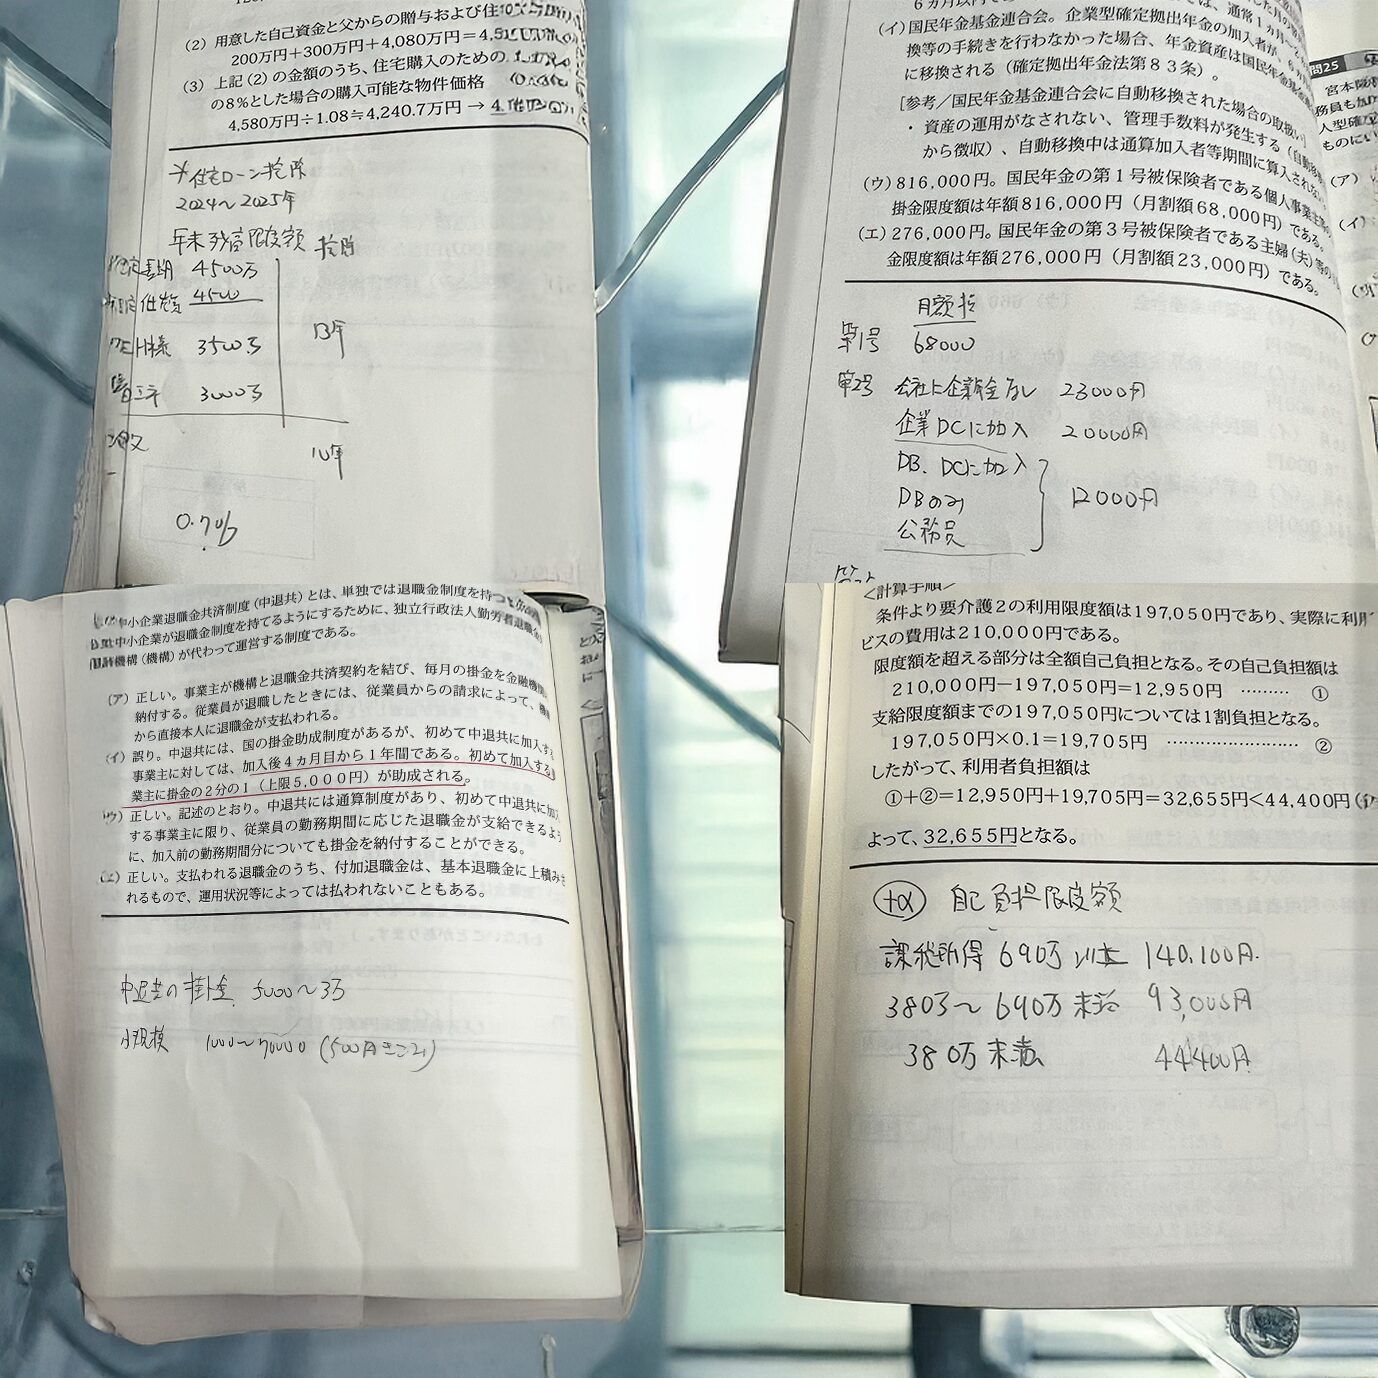 (2) 用意した自己資金と父からの贈与および住
200万円+300万円+4,080万円=4,5
(3) 上記(2)の金額のうち、住宅購入のための
の8%とした場合の購入可能な物件価格
4,580万円÷1.08≒4,240.7万円 →
住宅ローン控除
2024〜2025年
年末残高限度額 控除
4500万
4500
3500万 13年
3000万
10年
0.7%
6カ月以内
は、通常1カ月
(イ) 国民年金基金連合会。企業型確定拠出年金の加入者が、6カ月
換等の手続きを行わなかった場合、年金資産は国民年金基金
に移換される(確定拠出年金法第83条)。
[参考/国民年金基金連合会に自動移換された場合の取扱い]
・資産の運用がなされない、管理手数料が発生する(自動移
から徴収)、自動移換中は通算加入者等期間に算入されない
(ウ) 816,000円。国民年金の第1号被保険者である個人事業主
掛金限度額は年額816,000円(月割額68,000円)である。
(エ) 276,000円。国民年金の第3号被保険者である主婦(夫)等の
金限度額は年額276,000円(月割額23,000円)である。
問25
宮本
務員も加
人型確
ものにい
(ア)
(イ)
月額
第1号 68000
第2号 会社に企業年金なし 23000円
企業DCに加入 20000円
DB、DCに加入
DBのみ 12000円
公務員
中小企業退職金共済制度(中退共)とは、単独では退職金制度を持
中小企業が退職金制度を持てるようにするために、独立行政法人勤労者退職金
機構(機構)が代わって運営する制度である。
(ア) 正しい。事業主が機構と退職金共済契約を結び、毎月の掛金を金融機関
納付する。従業員が退職したときには、従業員からの請求によって、機構
から直接本人に退職金が支払われる。
(イ) 誤り。中退共には、国の掛金助成制度があるが、初めて中退共に加入する
事業主に対しては、加入後4カ月目から1年間である。初めて加入する
業主に掛金の2分の1(上限5,000円)が助成される。
(ウ) 正しい。記述のとおり。中退共には通算制度があり、初めて中退共に加入
する事業主に限り、従業員の勤務期間に応じた退職金が支給できるよう
に、加入前の勤務期間分についても掛金を納付することができる。
正しい。支払われる退職金のうち、付加退職金は、基本退職金に上積みさ
れるもので、運用状況等によっては払われないこともある。
中退共の掛金 5000〜3万
小規模 1000〜70000 (500円きざみ)
<計算手順>
条件より要介護2の利用限度額は197,050円であり、実際に利用
ビスの費用は210,000円である。
限度額を超える部分は全額自己負担となる。その自己負担額は
210,000円−197,050円=12,950円 ……… ①
支給限度額までの197,050円については1割負担となる。
197,050円×0.1=19,705円 …………………… ②
したがって、利用者負担額は
①+②=12,950円+19,705円=32,655円<44,400円
よって、32,655円となる。
+α 自己負担限度額
課税所得 690万以上 140,100円.
380万〜690万未満 93,000円
380万未満 44400円